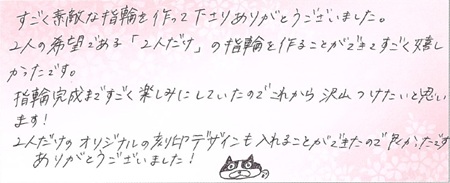 すごく素敵な指輪を作って下さりありがとうございました。
2人の希望である「2人だけ」の指輪を作ることができてすごく嬉し
かったです。
指輪完成まですごく楽しみにしていたのでこれから沢山つけたいと思い
ます!
2人だけのオリジナルの刻印デザインも入れることができたので良かったです
ありがとうございました!